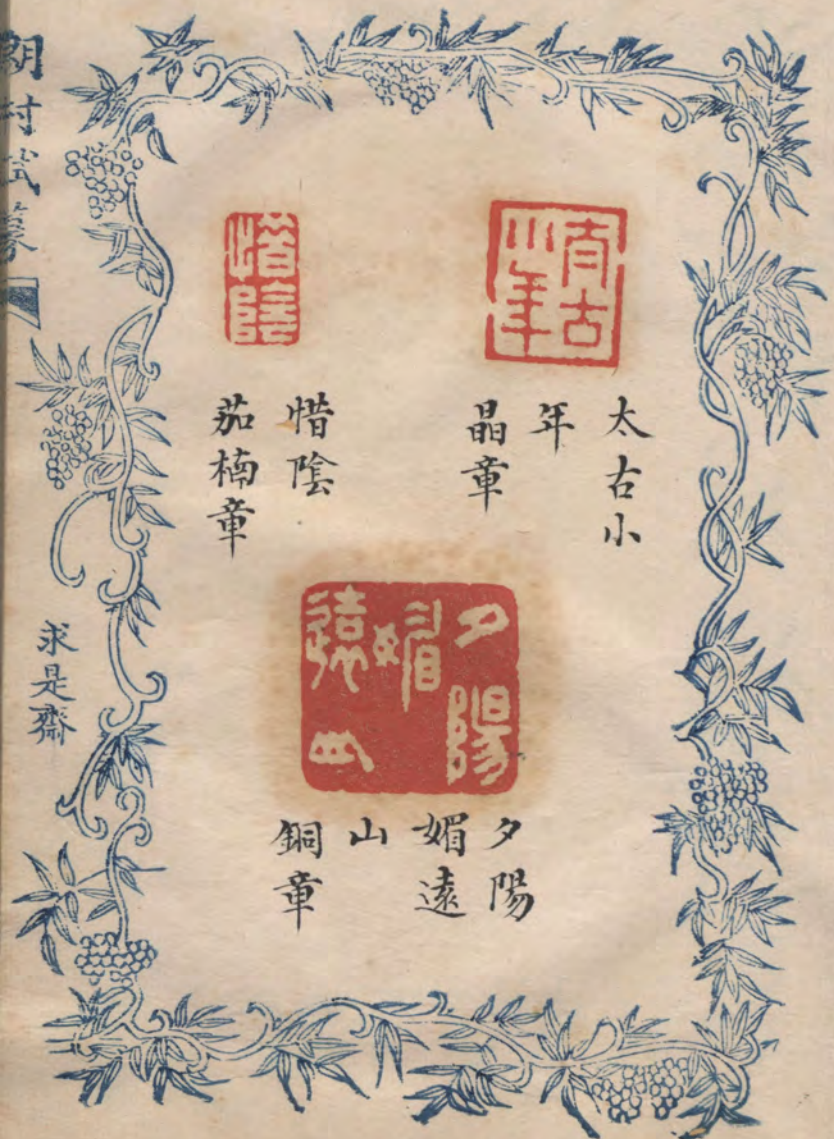 太古
小年
太古小
年
晶章
惜
陰
惜陰
茄楠章
夕陽
媚
遠山
夕陽
媚遠
山
銅章
朗村試篆
求是齋